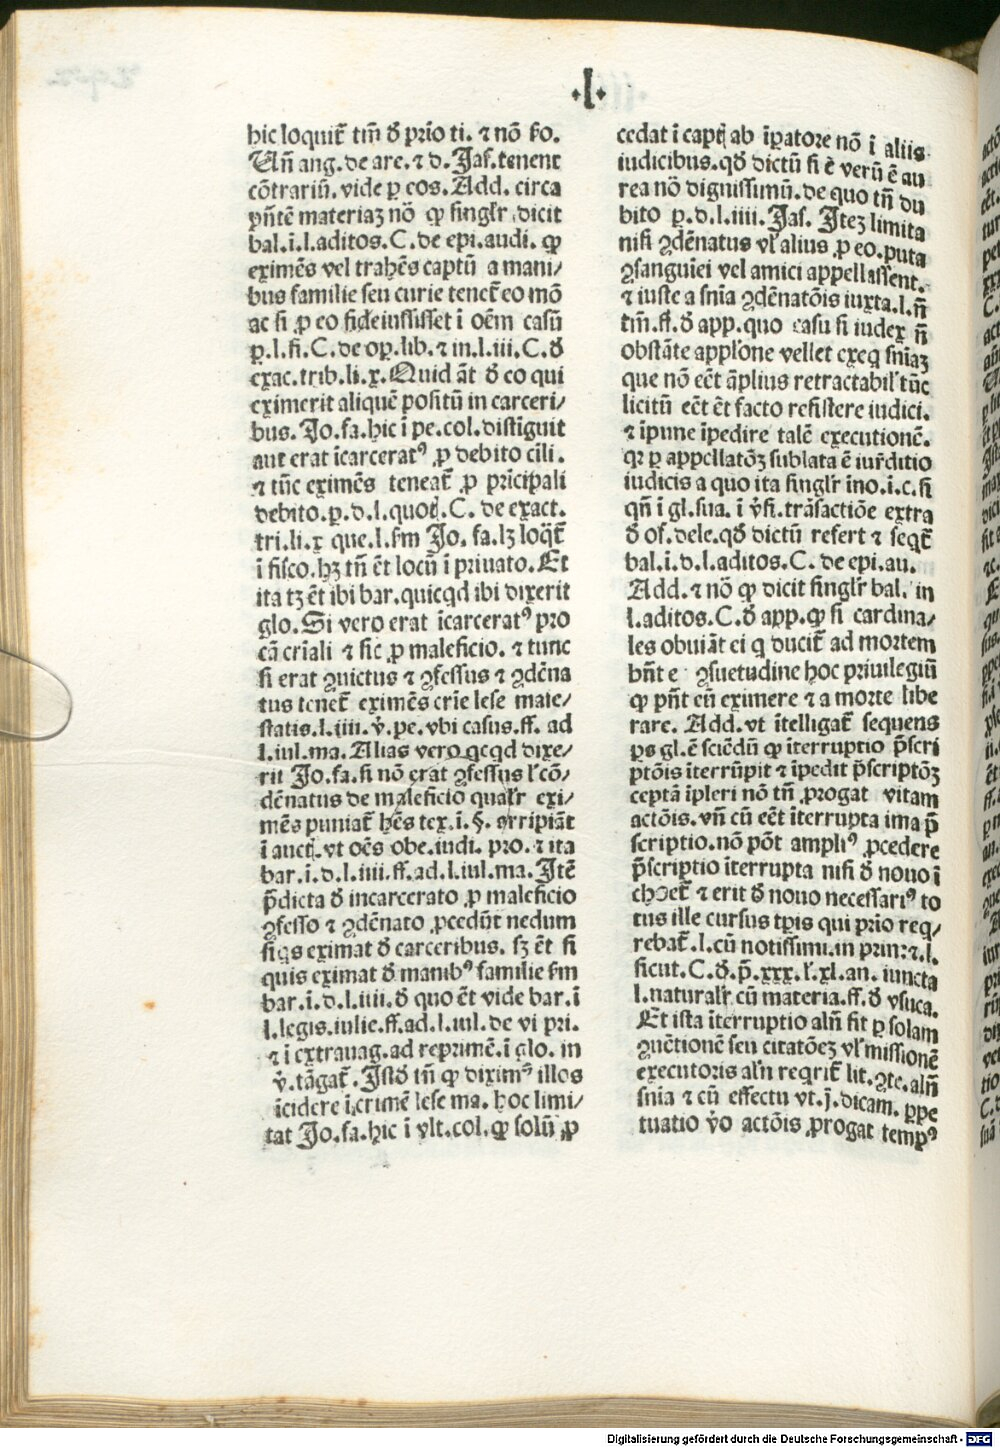 ·I·
hic loquit̃ tm̃ ð prĩo ti. ⁊ nõ ſo.
Uñ ang. de are. ⁊ d. Jaſ. tenent
cõtrariũ. vide ꝑ eos. Add. circa
pñtẽ materiaꝫ nõ ꝙ ſinglr̃ dicit
bal. ĩ. l. aditos. C. de epi. audi. ꝙ
eximẽs vel trahẽs captũ a mani/
bus familie ſeu curie tenet̃ eo mõ
ac ſi ꝓ eo fideiuſſiſſet ĩ oẽm caſũ
ꝑ. l. fi. C. de oꝑ. lib. ⁊ in. l. iii. C. ð
exac. trib. li. x. Quid ãt ð eo qui
eximerit aliquẽ poſitũ in carceri/
bus. Jo. fa. hic ĩ pe. col. diſtĩguit
aut erat ĩcarceratꝰ ꝓ debito cĩli.
⁊ tũc eximẽs teneat̃ ꝓ prĩcipali
debito. ꝑ. d. l. quot. C. de exact.
tri. li. x que. l. ẜm Jo. fa. lꝫ loqt̃
ĩ fiſco. hꝫ tñ ẽt locũ ĩ priuato. Et
ita tꝫ ẽt ibi bar. quicqd ibi dixerit
glo. Si vero erat ĩcarceratꝰ pro
cã crĩali ⁊ ſic ꝓ maleficio. ⁊ tunc
ſi erat ꝯuictus ⁊ ꝯfeſſus ⁊ ꝯdẽna
tus tenet̃ eximẽs crĩe leſe maie/
ſtatis. l. iiii. v̓. pe. vbi caſus. ff. ad
l. iul. ma. Alias vero qcqd dixe/
rit Jo. fa. ſi nõ erat ꝯfeſſus l̓ cõ/
dẽnatus de maleficio qualr̃ exi/
mẽs puniat̃ hẽs tex. ĩ. §. arripiãt
ĩ auct. vt oẽs obe. iudi. pro. ⁊ ita
bar. ĩ. d. l. iiii. ff. ad. l. iul. ma. Jtẽ
p̃dicta ð incarcerato ꝓ maleficio
ꝯfeſſo ⁊ ꝯdẽnato ꝓcedũt nedum
ſi qs eximat ð carceribus. ſꝫ ẽt ſi
quis eximat ð manibꝰ familie ẜm
bar. ĩ. d. l. iiii. ð quo ẽt vide bar. ĩ
l. legis. iulie. ff. ad. l. iul. de vi pri.
⁊ ĩ extrauag. ad reprimẽ. ĩ glo. in
v̓. tãgat̃. Jſtð tñ ꝙ diximꝰ illos
ĩcidere ĩ crimẽ leſe ma. hoc limi/
tat Jo. fa. hic ĩ vlt. col. ꝙ ſolũ ꝓ
cedat ĩ capt ab ĩꝑatore nõ ĩ aliis
iudicibus. qð dictũ ſi ẽ verũ ẽ au
rea nõ digniſſimũ. de quo tñ du
bito ꝑ. d. l. iiii. Jaſ. Jteꝫ limita
niſi ꝯdẽnatus vl̓ alius ꝓ eo. puta
ꝯſanguĩei vel amici appellaſſent.
⁊ iuſte a ſnĩa ꝯdẽnatõis iuxta. l. ñ
tm̃. ff. ð app. quo caſu ſi iudex ñ
obſtãte applõne vellet exeq ſnĩaꝫ
que nõ eẽt ãplius retractabil̓ tũc
licitũ eẽt ẽt facto reſiſtere iudici.
⁊ ĩpune ĩpedire talẽ executionẽ.
qꝛ ꝑ appellatõꝫ ſublata ẽ iur̃ditio
iudicis a quo ita ſinglr̃ ĩno. ĩ. c. ſi
qñ ĩ gl. ſua. ĩ v̓ſi. trãſactiõe extra
ð of. dele. qð dictũ refert ⁊ ſeqt̃
bal. ĩ. d. l. aditos. C. de epi. au.
Add. ⁊ nõ ꝙ dicit ſinglr̃ bal. in
l. aditos. C. ð app. ꝙ ſi cardina/
les obuiãt ei q ducit̃ ad mortem
hñt e ꝯſuetudine hoc priuilegiũ
ꝙ pñt eũ eximere ⁊ a morte libe
rare. Add. vt ĩtelligat̃ ſequens
ꝑs gl. ẽ ſciẽdũ ꝙ ĩterruptio p̃ſcri
ptõis ĩterrũpit ⁊ ĩpedit p̃ſcriptõꝫ
ceptã ĩpleri nõ tñ ꝓrogat vitam
actõis. vñ cũ eẽt ĩterrupta ima p̃
ſcriptio. nõ põt ampliꝰ ꝓcedere
p̃ſcriptio ĩterrupta niſi ð nouo ĩ
choet̃ ⁊ erit ð nouo neceſſariꝰ to
tus ille curſus tꝑis qui prĩo req/
rebat̃. l. cũ notiſſimi. in prin: ⁊. l.
ſicut. C. ð. p̃. xxx. l̓. xl. an. iuncta
l. naturalr̃ cũ materia. ff. ð vſuca.
Et iſta ĩterruptio alñ fit ꝑ ſolam
ꝯuẽtionẽ ſeu citatõeꝫ vl̓ miſſionẽ
executoris al̓n reqrit̃ lit. ꝯte. alñ
ſnĩa ⁊ cũ effectu vt. j. dicam. ꝑpe
tuatio v̓o actõis ꝓrogat tempꝰ